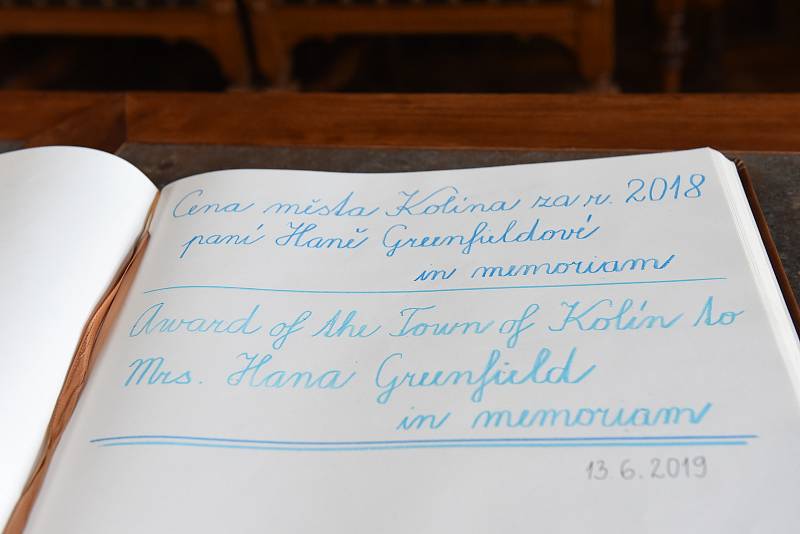 Cena města Kolína za r. 2018
paní Haně Greenfieldové
in memoriam
Award of the Town of Kolín to
Mrs. Hana Greenfield
in memoriam
13 6.2019